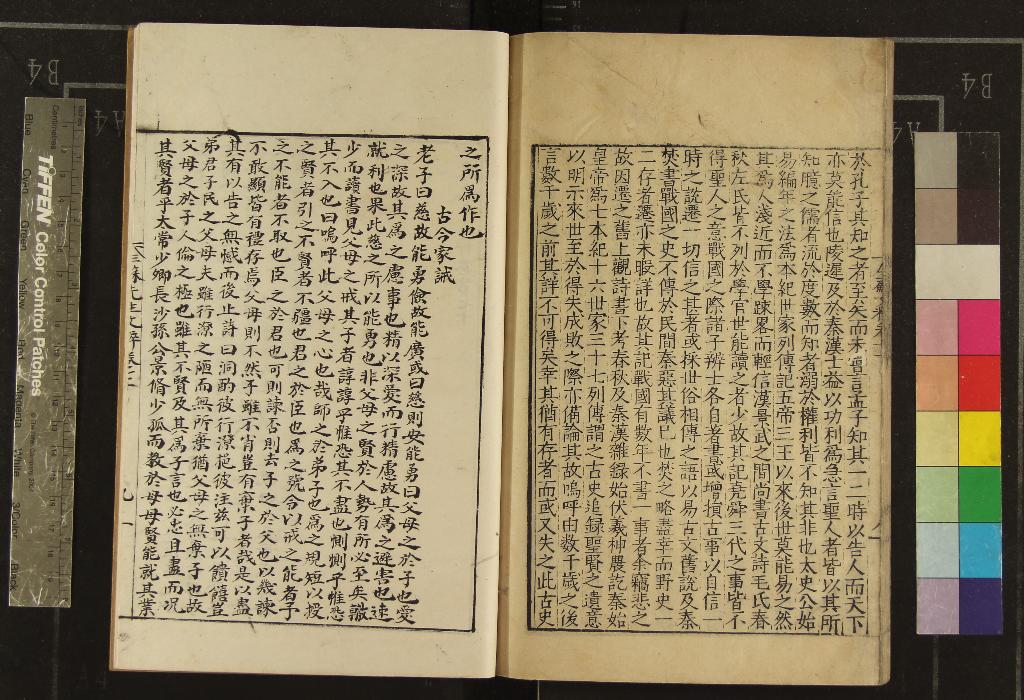 於孔子其知之者至矣而未嘗言孟子知其一二時以告人而天下
亦莫能信也陵遲及於秦漢士益以功利為急言聖人者皆以其所
知臆之儒者流於度數而知者溺於權利皆不知其非也太史公始
易編年之法為本紀世家列傳記五帝三王以來後世莫能易之然
其為人淺近而不學踈畧而輕信漢景武之間尚書古文詩毛氏春
秋左氏皆不列於學官世能讀之者少故其記堯舜三代之事皆不
得聖人之意戰國之際諸子辨士各自著書或增損古事以自信一
時之說遷一切信之甚者或採世俗相傳之語以易古文舊說及秦
焚書戰國之史不傳於民間秦惡其議已也焚之略盡幸而野史一
二存者遷亦未暇詳也故其記戰國有數年不書一事者余竊悲之
故因遷之舊上觀詩書下考春秋及秦漢雜錄始伏羲神農訖秦始
皇帝為七本紀十六世家三十七列傳謂之古史追錄聖賢之遺意
以明示來世至於得失成敗之際亦備論其故嗚呼由数千歲之後
言數千歲之前其詳不可得矣幸其猶有存者而或又失之此古史
之所為作也
古今家誡
老子曰慈故能勇儉故能廣或曰慈則安能勇曰父母之於子也愛
之深故其為之慮事也精以深愛而行精慮故其為之避害也速
就利也果此慈之所以能勇也非父母之賢於人勢有所必至矣轍
少而讀書見父母之戒其子者諄諄乎惟恐其不盡也惻惻乎惟恐
其不入也曰嗚呼此父母之心也哉師之於弟子也為之規短以授
之賢者引之不賢者不彊也君之於臣也為之號令以戒之能者予
之不能者不取也臣之於君也可則諫否則去子之於父也以幾諫
不敢顯皆有禮存焉父母則不然子雖不肖豈有棄子者哉是以盡
其有以告之無憾而後止詩曰泂酌彼行潦挹彼注兹可以餴饎豈
弟君子民之父母夫雖行潦之陋而無所棄猶父母之無棄子也故
父母之於子人倫之極也雖其不賢及其為子言也必忠且盡而况
其賢者乎太常少卿長沙孫公景脩少孤而教於母母賢能就其業
TIFFEN Color Control Patches
Centimetres
Blue
Cyan
Green
Yellow
Red
Magenta
White
3/Color
Black
B4
B4
A4